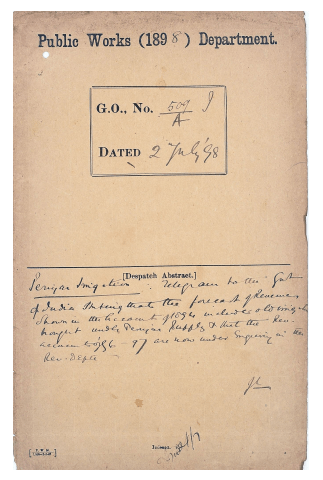 Public Works (1898) Department.
G.O., No. 509 I
A
DATED 2 July 98
[Despatch Abstract.]
Periyar Irrigation : Telegram to the Govt
of India that the forecast of Revenue
Shown in the account of 1896 includes old
brought under Periyar Supply & that the Rev-
accounts 97 are now under enquiry in the
Rev. Depte
Indexed.